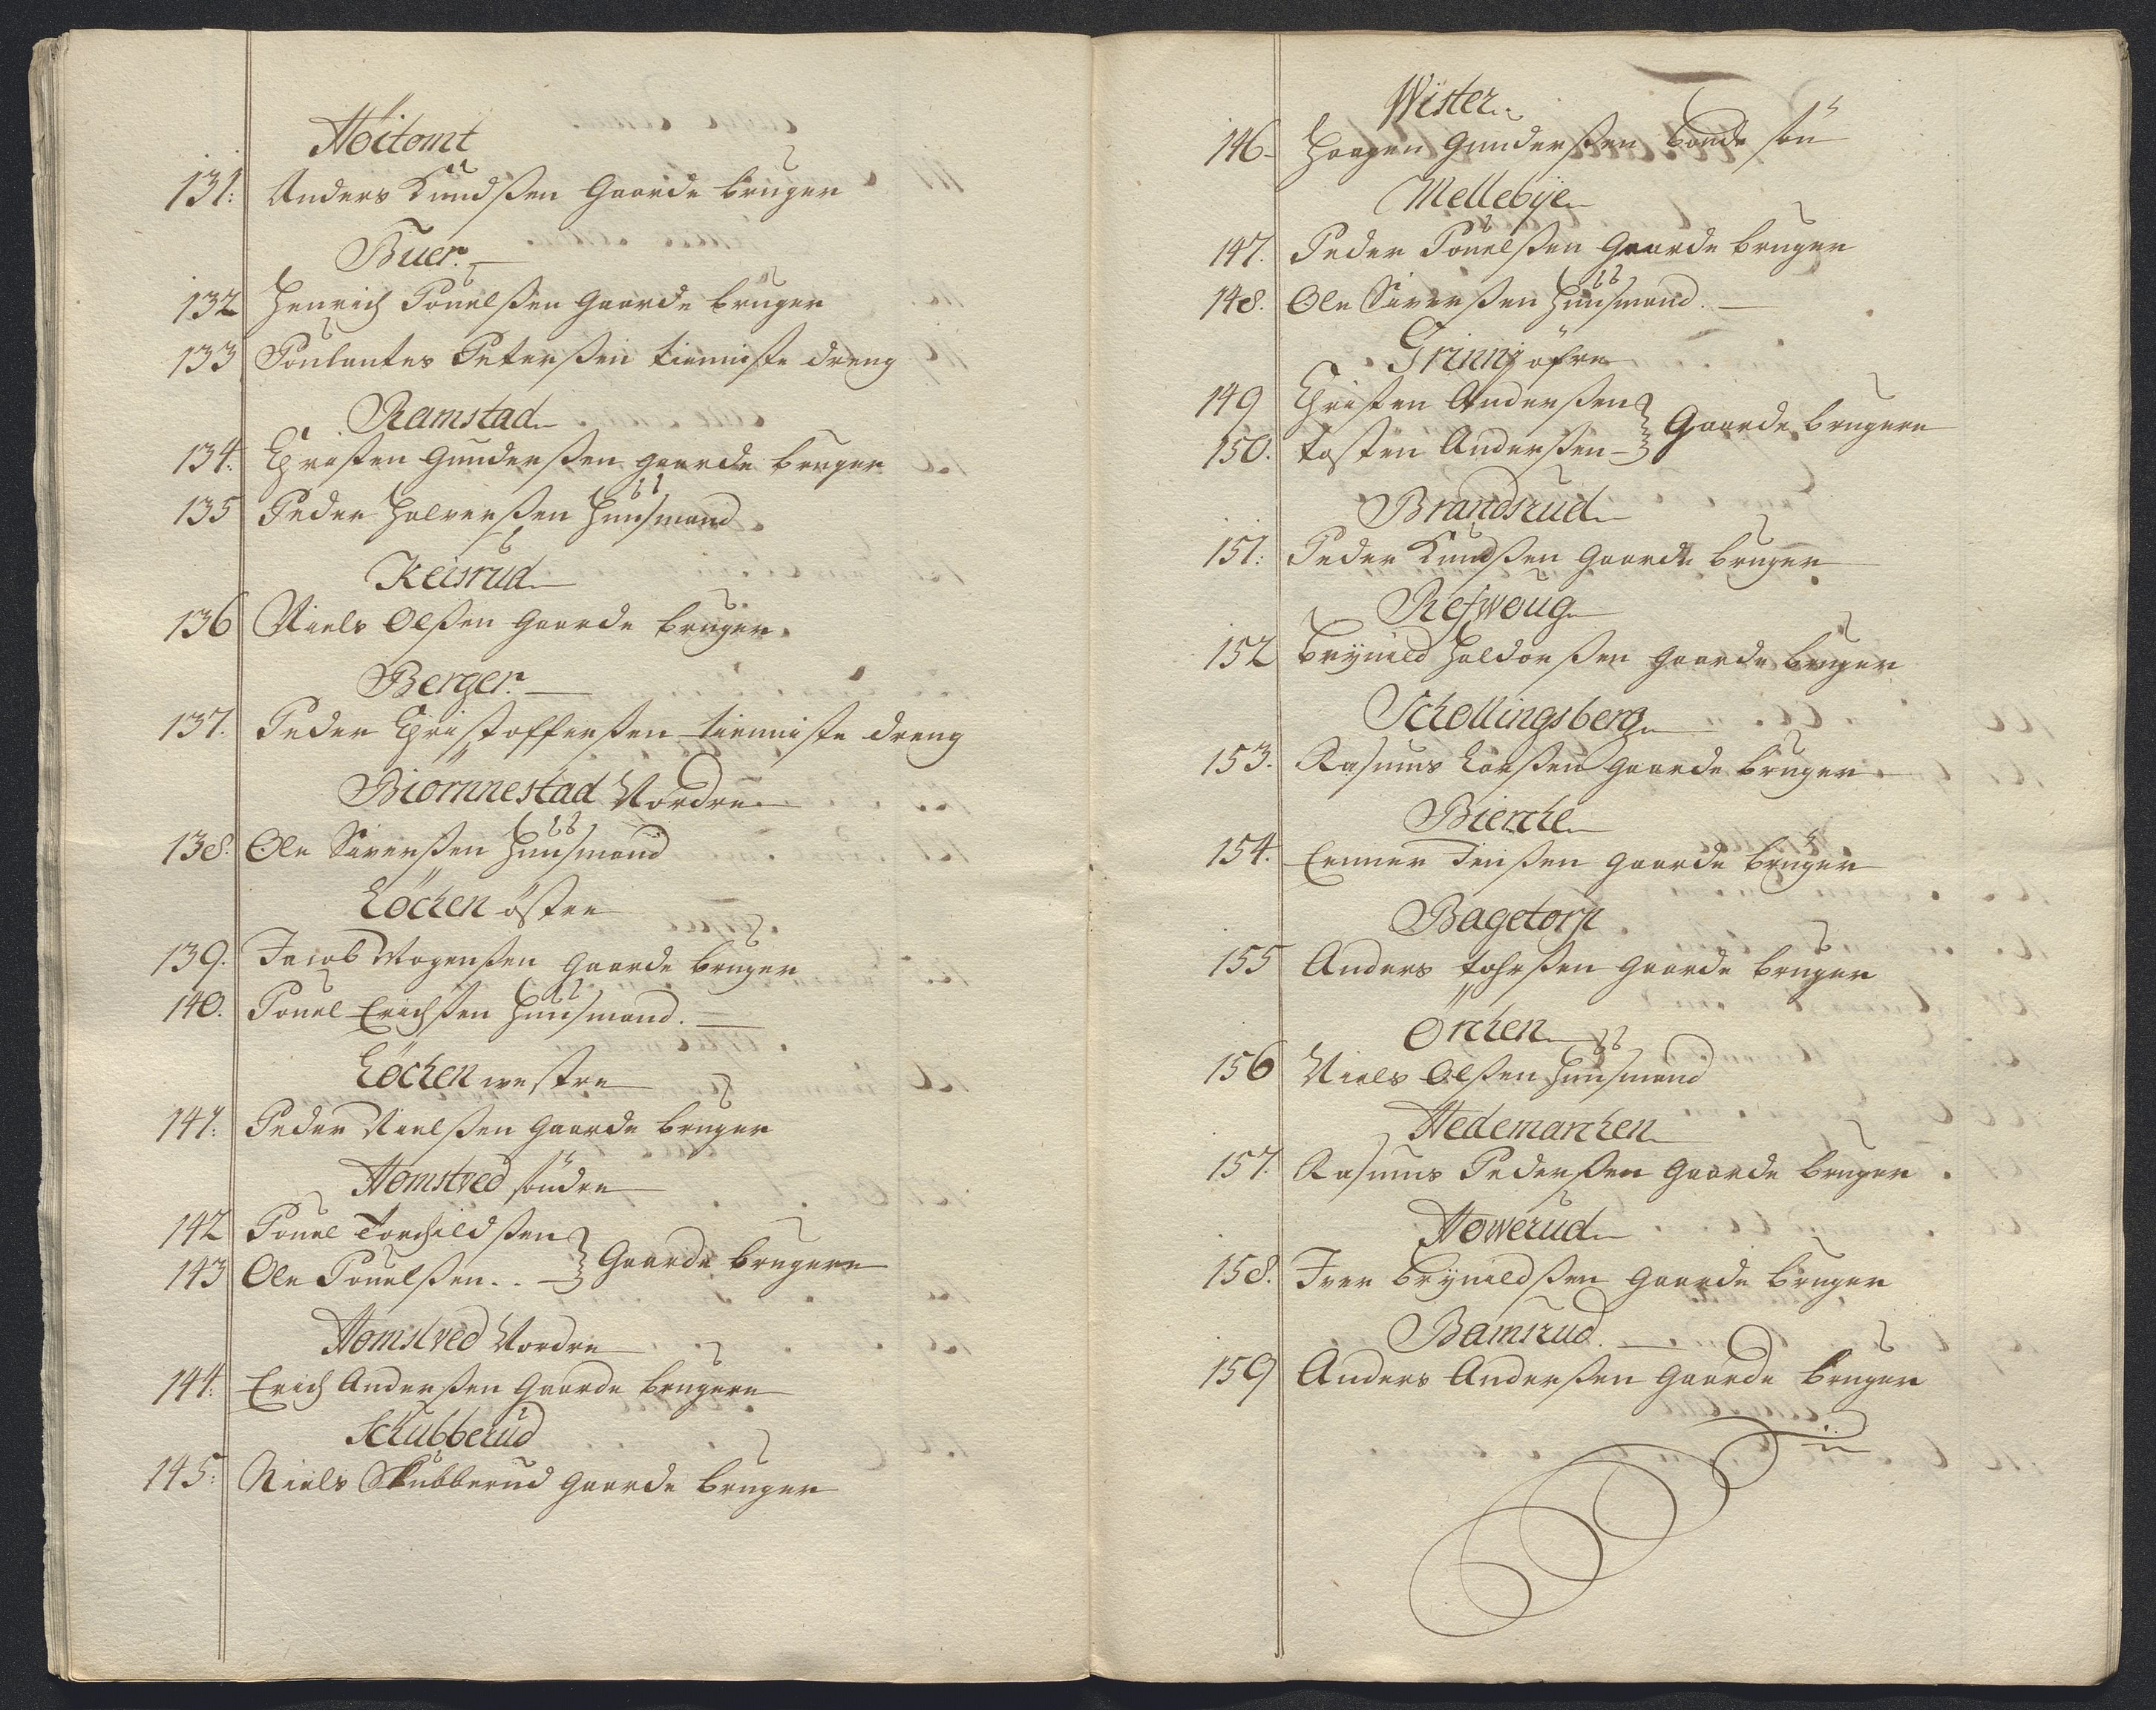 Höitomt
131: Anders Knudsßen Gaarde bruger
Buer.
132 Henrich Pouelsßen Gaarde bruger
133 Poulantes Petersßen tienniste dreng
Ramstad
134. Christen Gundersßen gaarde bruger
135 Peder Halversßen Huusmand
Keisrud
136 Niels Olsßen gaarde bruger.
Berger.
137. Peder Christoffersßen tienniste dreng
Biörnnestad Nordre
138. Ole Siversßen Huusmand
Löchen östre
139. Jacob Mogensßen gaarde bruger
140. Pouel Erichsßen Huusmand.
Löchen westre
141. Peder Nielsßen Gaarde bruger
Homstved söndre
142 Pouel Torchildsßen
143 Ole Pouelsßen .. Gaarde brugere
Homstved Nordre
144. Erich Andersßen Gaarde brugere
Schubberud
145. Niels Skubberud gaarde bruger
Wister
146 Haagen Gundersßen bonde sön
Mellebÿe
147. Peder Pouelsßen Gaarde bruger
148. Ole Siversßen Huusmand.
Grinnj öfre
149 Christen Andersßen
150. Tosten Andersßen Gaarde brugere
Brandsrud
151: Peder Knudsßen Gaarde bruger
Refwoug
152 Brÿnild Haldorsßen gaarde bruger
Schollingsberg
153. Rasmus Larsßen Gaarde bruger
Bierche
154. Enner Jensßen gaarde bruger
Bagetorp
155 Anders Tohrsßen gaarde bruger
Örchen
156 Niels Olsßen Huusmand
Hedemarchen
157. Rasmus Pedersßen Gaarde bruger
Howerud
158. Iver Brÿnildsßen gaarde bruger
Bamsrud.
159 Anders Andersßen Gaarde bruger